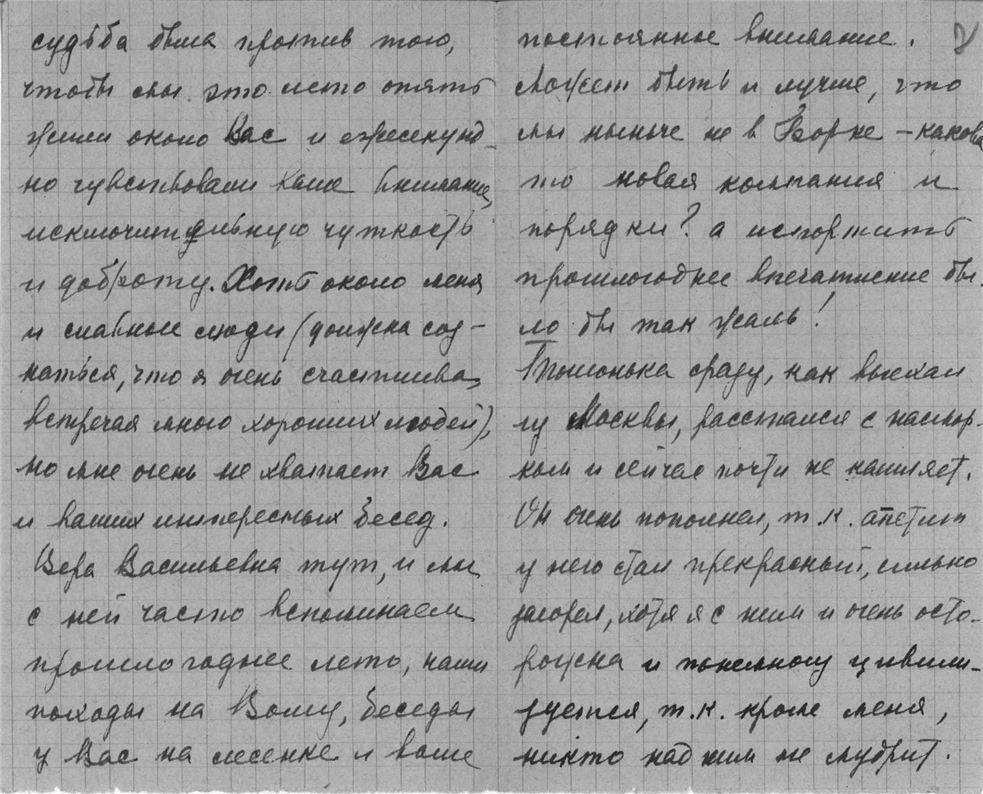 судьба была против того,
чтобы мы это лето опять
жили около Вас и ежесекунд-
но чувствовали Ваше внимание,
исключительную чуткость
и доброту. Хоть около меня
и славные люди (должна соз-
наться, что я очень счастлива,
встречая много хороших людей),
но мне очень не хватает Вас
и ваших интересных бесед.
Вера Васильевна тут, и мы
с ней часто вспоминаем
прошлогоднее лето, наши
походы на Волгу, беседы
у Вас на лесенке и ваше
2
постоянное внимание.
Может быть и лучше, что
мы нынче не в Борке – какова
то новая компания и
порядки? а испортить
прошлогоднее впечатление бы-
ло бы так жаль!
сразу, как выехал
из Москвы, расстался с насмор-
ком и сейчас почти не кашляет.
Он очень пополнел, т.к. апетит
у него стал прекрасный, сильно
загорел, хотя я с ним и очень осто-
рожна и понемногу цивили-
зуется, т.к. кроме меня,
никто над ним не мудрит.